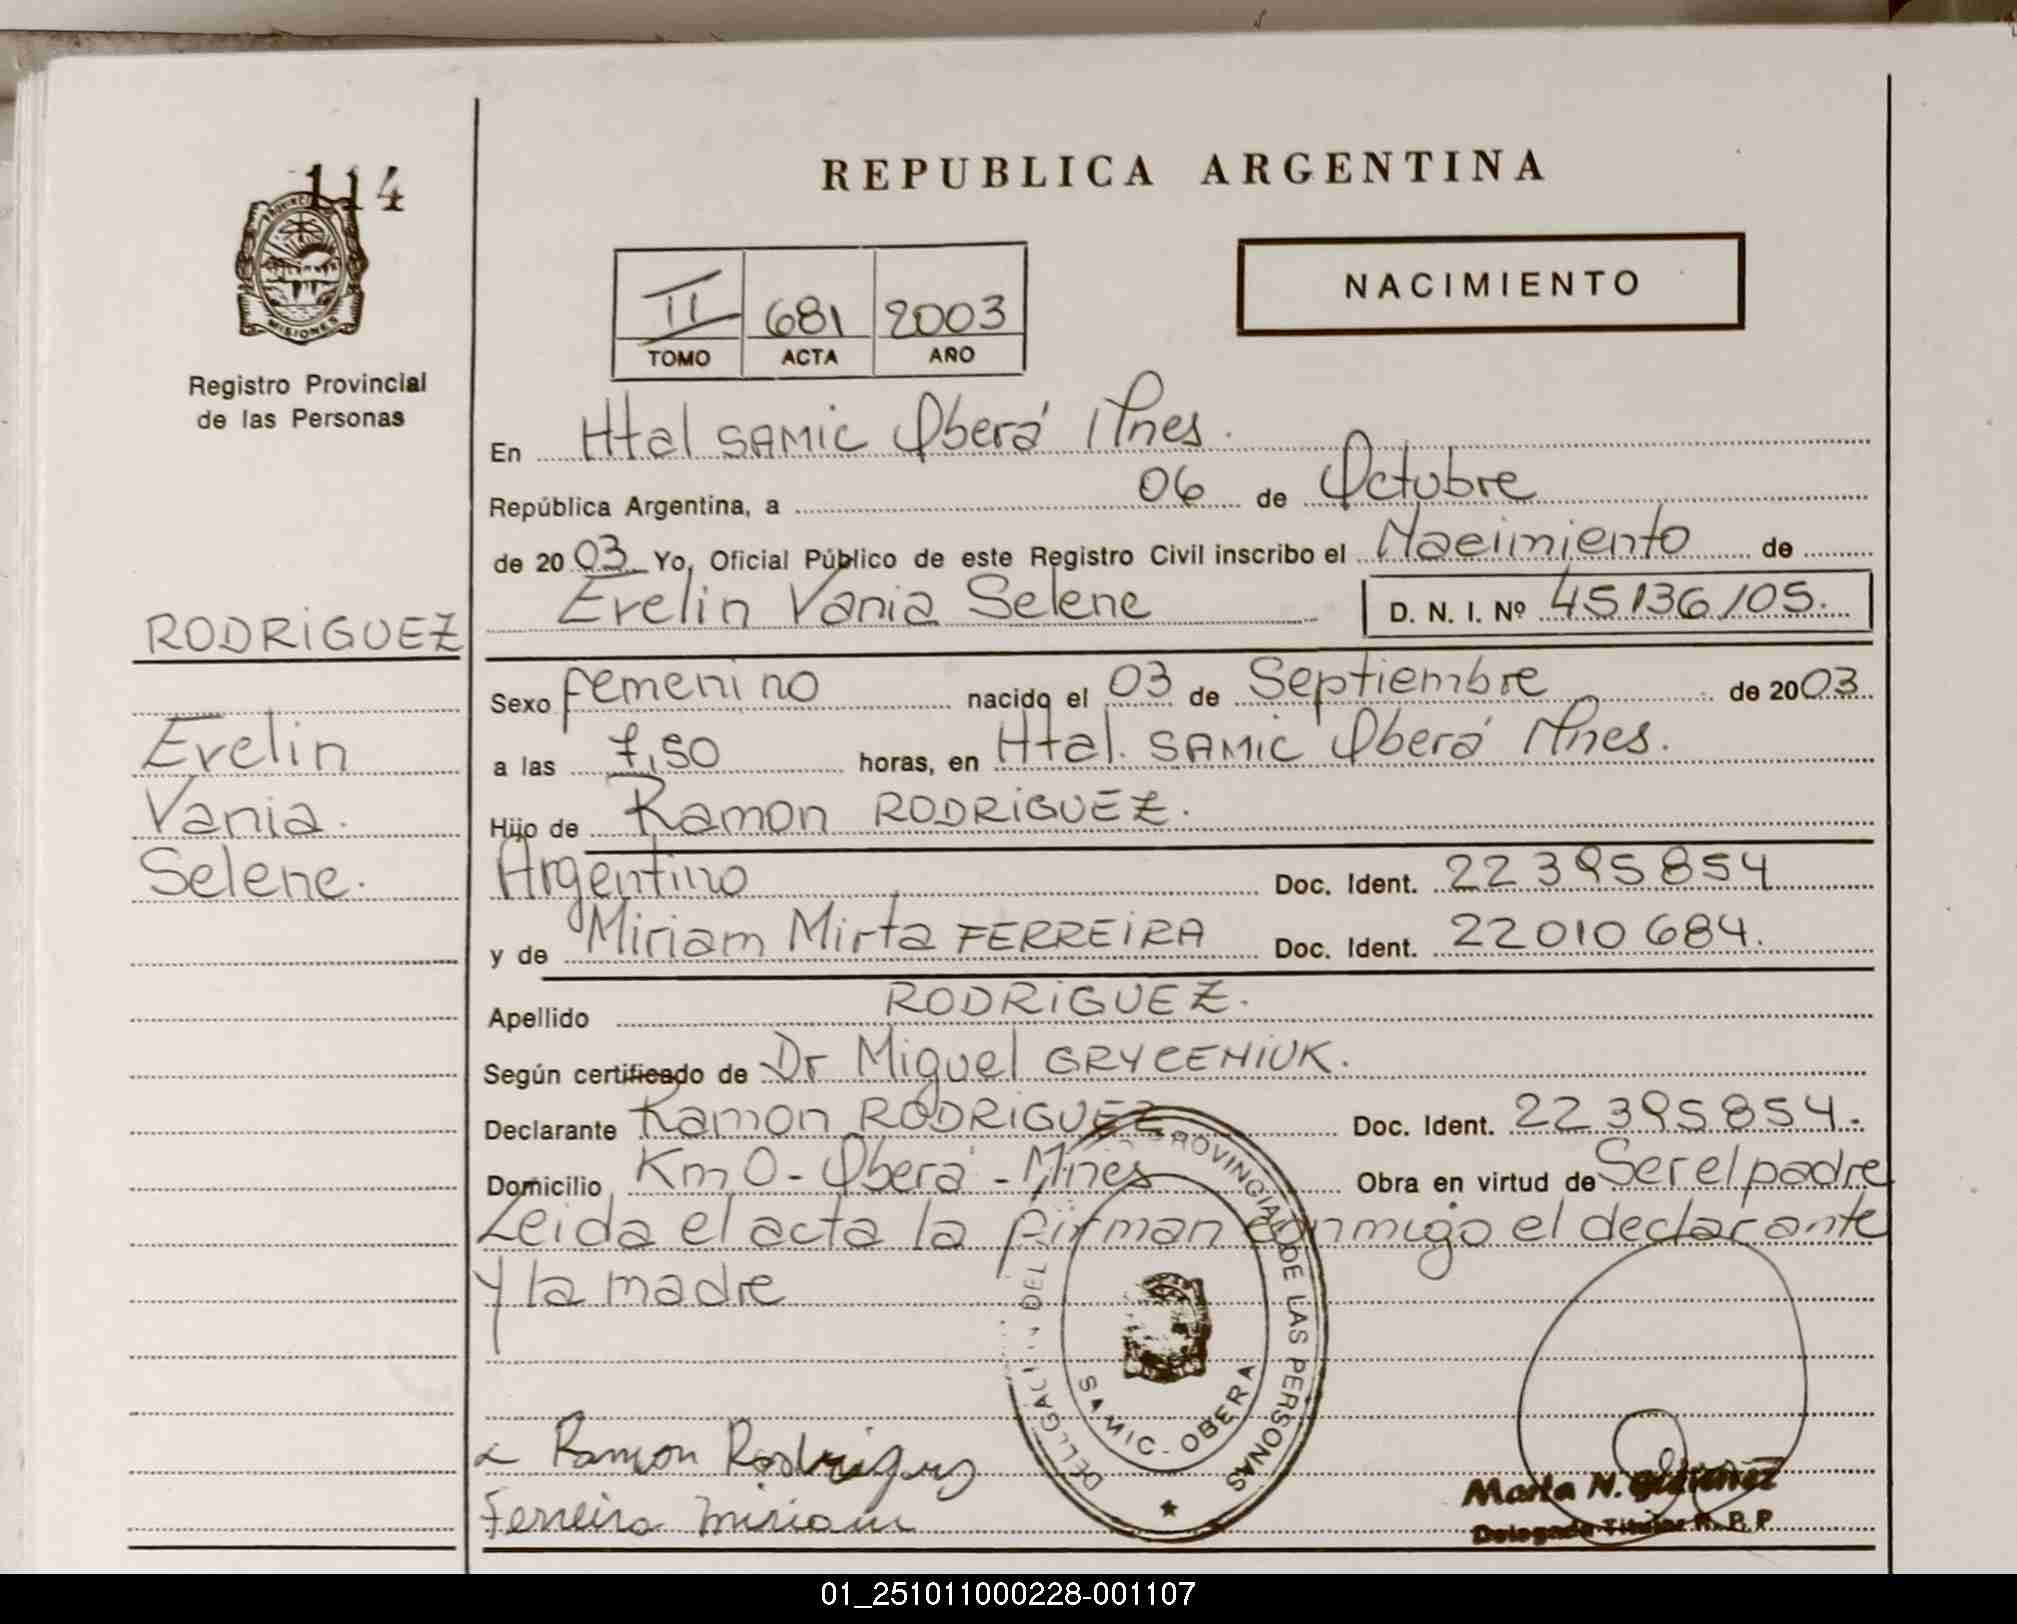 114
REPUBLICA ARGENTINA
NACIMIENTO
II 681 2003
TOMO ACTA AÑO
MISIONES
Registro Provincial
de las Personas
En Htal SAMIC Oberá Mnes.
República Argentina, a 06 de Octubre
de 2003 Yo, Oficial Público de este Registro Civil inscribo el Nacimiento de
Evelin Vania Selene D. N. I. Nº 45.136.105.
RODRiGUEZ
Evelin
Vania.
Selene.
Sexo femenino nacido el 03 de Septiembre de 2003
a las 7,50 horas, en Htal. SAMIC Oberá Mnes.
Hijo de Ramon RODRiGUEZ.
Argentino Doc. Ident. 22 395 854
y de Miriam Mirta FERREiRA Doc. Ident. 22 010 684.
Apellido RODRiGUEZ.
Según certificado de Dr Miguel GRYCENIUK.
Declarante Ramon RODRiGUEZ Doc. Ident. 22 395 854.
Domicilio Km 0 - Oberá - Mnes Obra en virtud de Ser el padre
Leida el acta la firman conmigo el declarante
y la madre
PROVINCIAL DE LAS PERSONAS
SAMIC - OBERA
Ramon Rodriguez
Ferreira Miriam
Marta N.
Delegada Titular R. P. P.
01_251011000228-001107